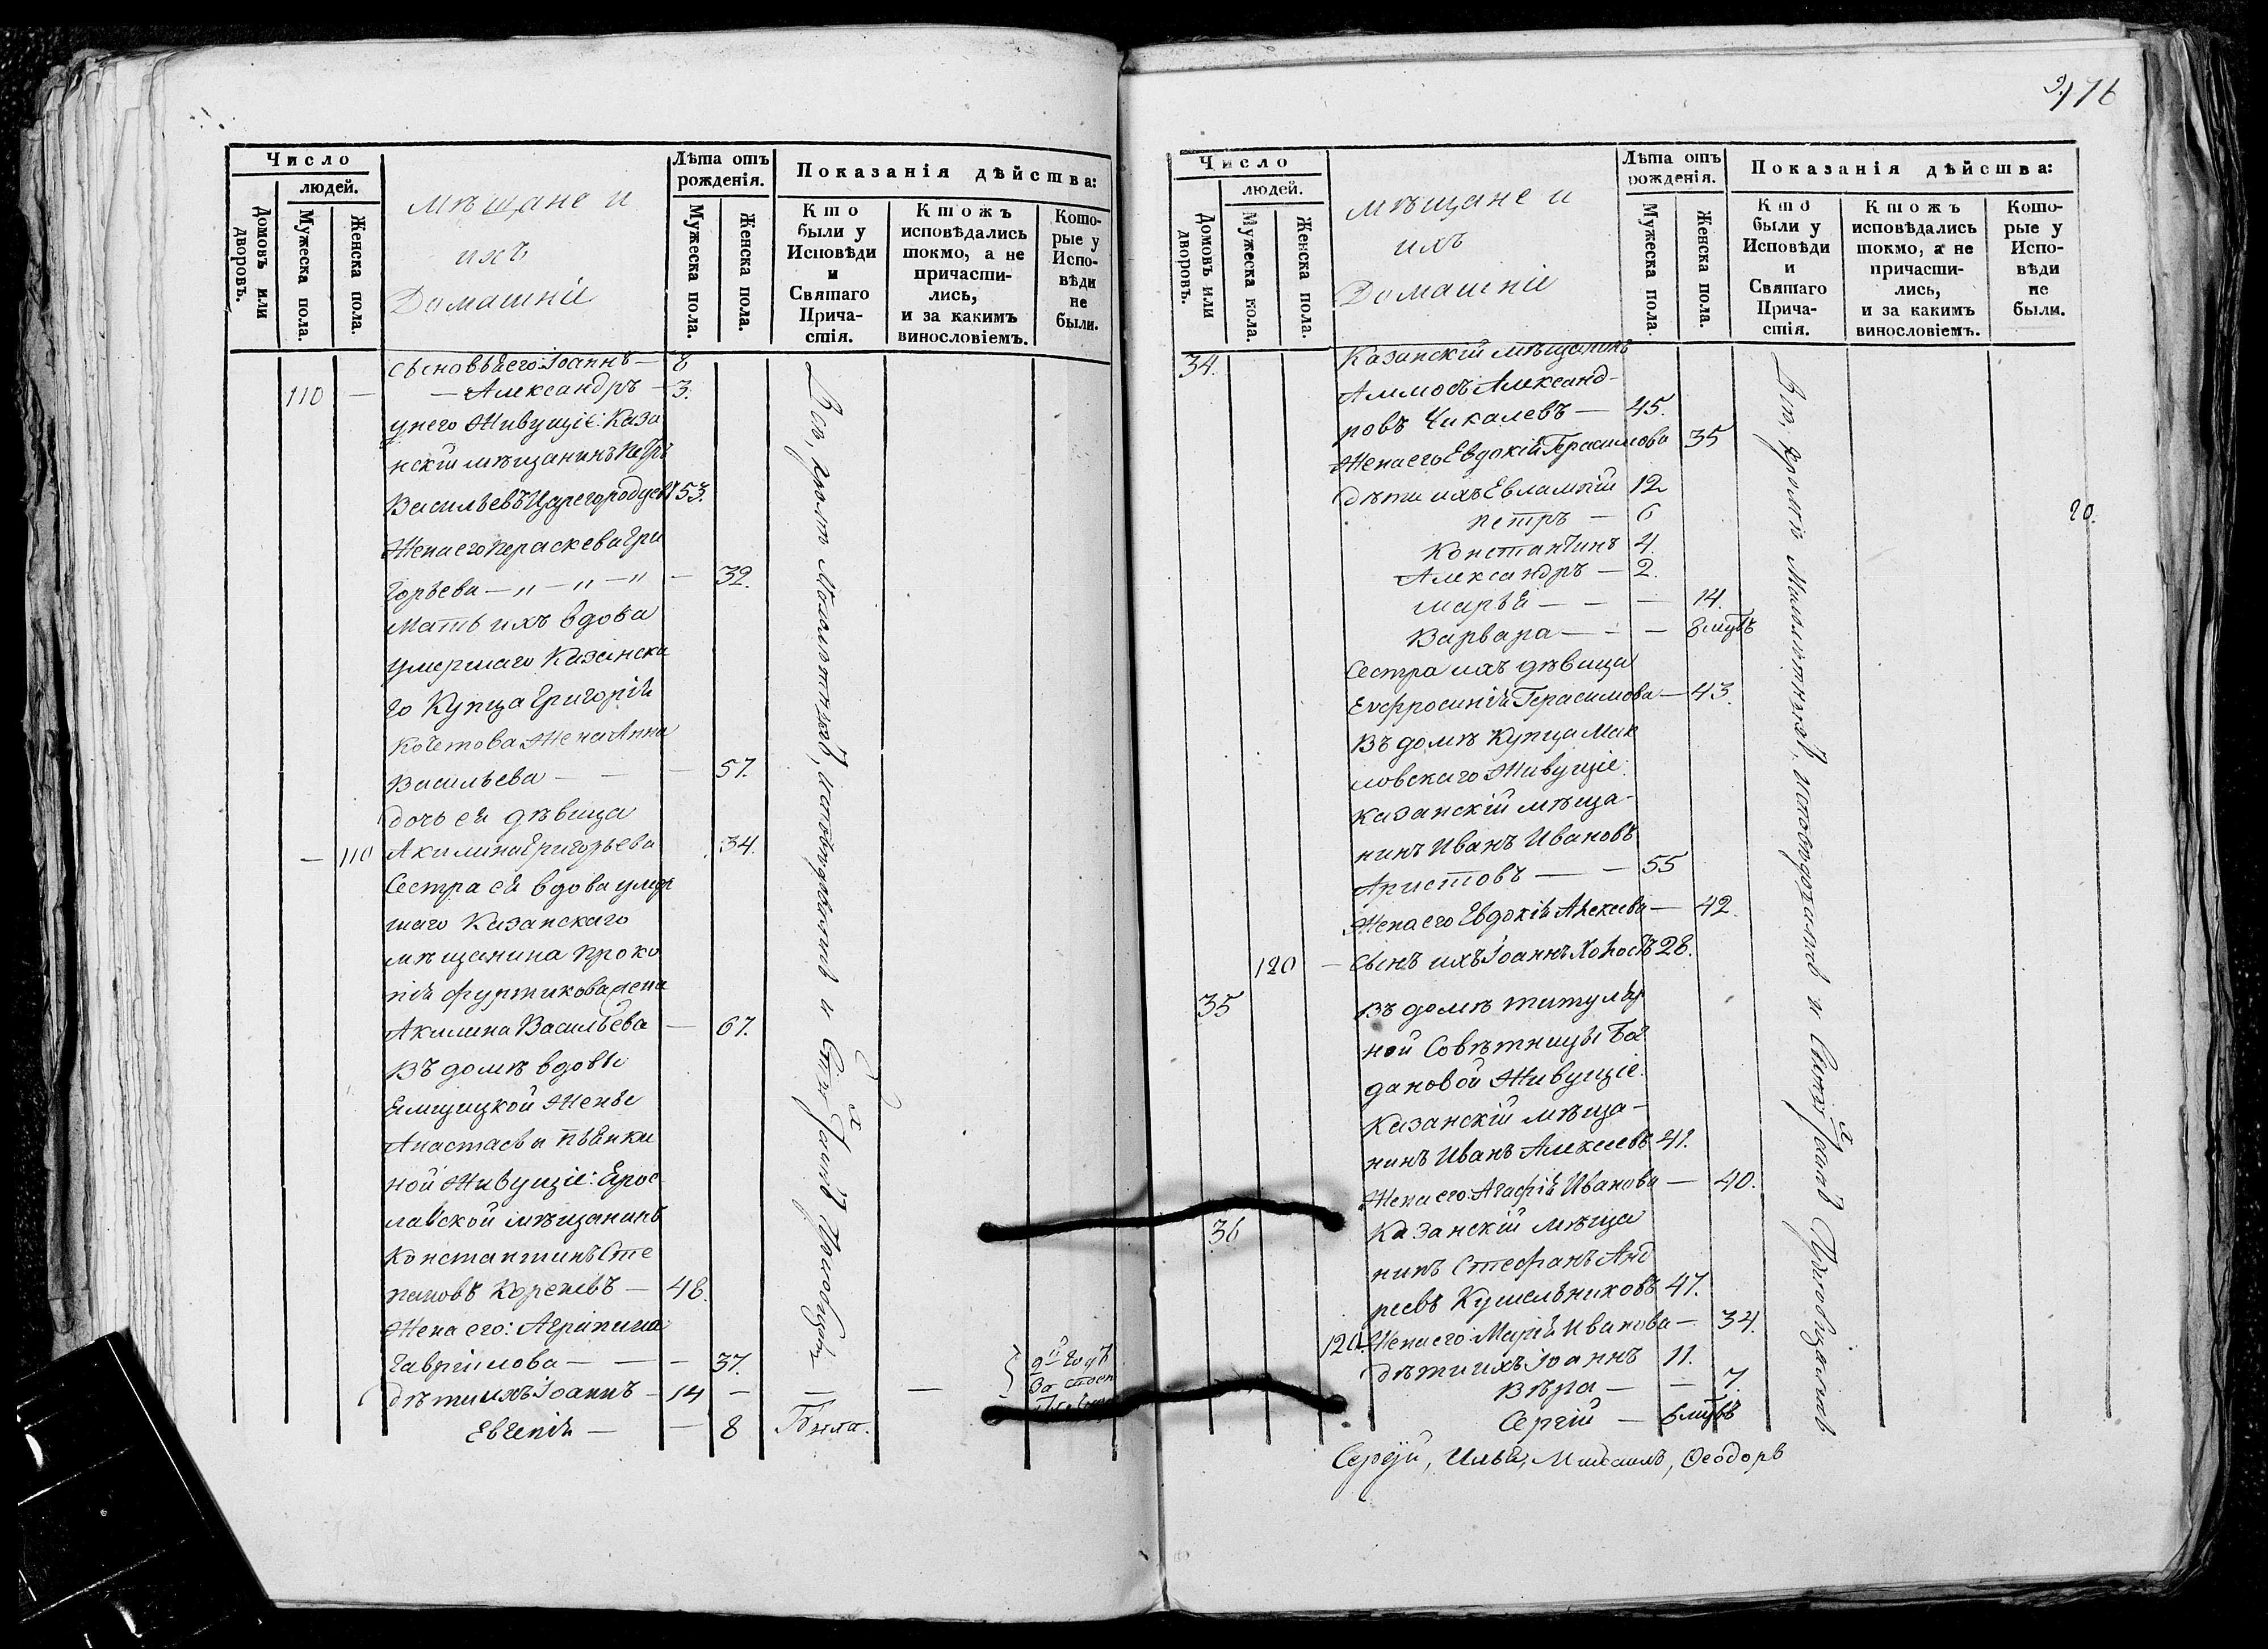 Число
людей.
Домовъ или дворовъ.
Мужеска пола.
Женска пола.
Мѣщане и
ихъ
Домашніе
Лѣта отъ рожденія.
Мужеска пола.
Женска пола.
Показанія дѣйства:
Кто были у Исповѣди и Святаго Причастія.
Ктожъ исповѣдались токмо, а не причастились, и за какимъ винословіемъ.
Которые у Исповѣди не были.
сыновья его: Іоаннъ — 8
110 — — Александръ — 3.
у него Живущіе: Каза
нскій мѣщанинъ Петръ
Васильевъ Царегородцевъ 53.
Жена его Параскева Гри
горьева — „ — „ — „ — 32.
Мать ихъ вдова
умершаго Казанска
го Купца Григорія
Кочетова Жена Анна
Васильева — — — 57.
дочь ея дѣвица
— 110 Акилина Григорьева 34.
Сестра ея вдова умер
шаго Казанскаго
мѣщанина Проко
пія Фуртикова жена
Акилина Васильева — 67.
Въ домѣ вдовы
Ямщицкой Жены
Анастасьи Пьянки
ной Живущіе: Ярос
лавской мѣщанинъ
Константинъ Сте
пановъ Кореневъ — 48.
Жена его: Агрипина
Гавриилова — — — 37.
дѣти ихъ Іоаннъ — 14 — „ —
Евгенія — — 8 Была.
Всѣ, кромѣ Малолѣтныхъ, исповѣдались и Свят. Таинъ Пріобщались
276
Число
людей.
Домовъ или дворовъ.
Мужеска пола.
Женска пола.
Мѣщане и
ихъ
Домашніе
Лѣта отъ рожденія.
Мужеска пола.
Женска пола.
Показанія дѣйства:
Кто были у Исповѣди и Святаго Причастія.
Ктожъ исповѣдались токмо, а не причастились, и за какимъ винословіемъ.
Которые у Исповѣди не были.
34. Казанскій мѣщанинъ
Аммосъ Александ-
ровъ Чикалевъ — 45.
Жена его Евдокія Герасимова 35
дѣти ихъ Евлампій 12
Петръ — 6
20.
Константинъ 4.
Александръ — 2.
Марья — — — 14.
Варвара — — — 8 мцвъ
Сестра ихъ дѣвица
Евфросинія Герасимова — 43.
Въ домѣ Купца Мак
ловскаго Живущіе:
Казанскій мѣща-
нинъ Иванъ Ивановъ
Аристовъ — — 55
Жена его Евдокія Алексеева — 42.
120 — Сынъ ихъ Іоаннъ Холостъ 28.
35 Въ домѣ титуляр
ной Совѣтницы Бог
дановой Живущіе:
Казанскій мѣща-
нинъ Иванъ Алексеевъ 41.
Жена его: Агафія Иванова — 40.
36 Казанскій мѣща
нинъ Стефанъ Анд
реевъ Кушельниковъ 47.
120. Жена его Марія Иванова — 34.
дѣти ихъ Іоаннъ 11.
Вѣра — — 7.
Сергій — 6 мцвъ
Всѣ, кромѣ Малолѣтныхъ, Исповѣдались и Свят. Таинъ Пріобщались
Сергій, Илья, Михаилъ, Ѳеодоръ